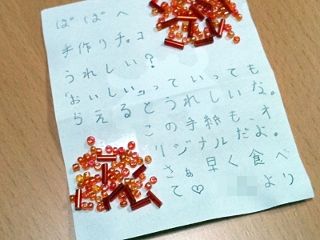 ぱぱへ
手作りチョコ
うれしい?
"おいしい"っていっても
らえるとうれしいな。
この手紙も、オ
リジナルだよ。
さぁ早く食べ
て♡
より